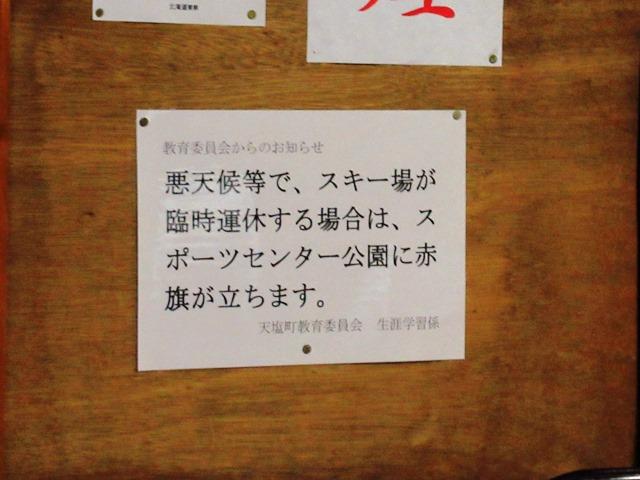 教育委員会からのお知らせ
悪天候等で、スキー場が
臨時運休する場合は、ス
ポーツセンター公園に赤
旗が立ちます。
天塩町教育委員会　生涯学習係